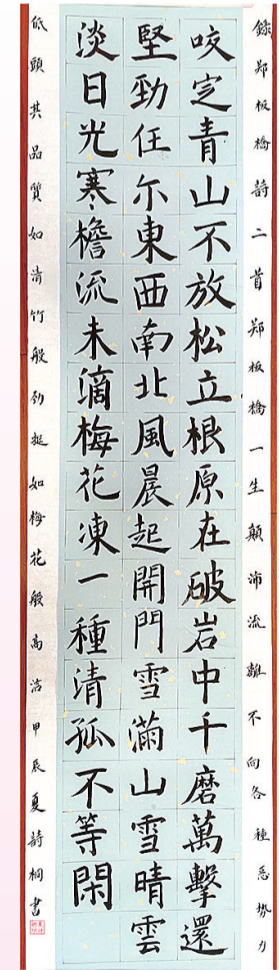 錄郑板橋詩二首郑板橋一生顛沛流離不向各種惡勢力
咬定青山不放松立根原在破岩中千磨萬擊還
堅勁任尔東西南北風晨起開門雪滿山雪晴雲
淡日光寒檐流未滴梅花凍一種清孤不等閑
低頭其品質如清竹般勁挺如梅花般高洁甲辰夏詩桐書